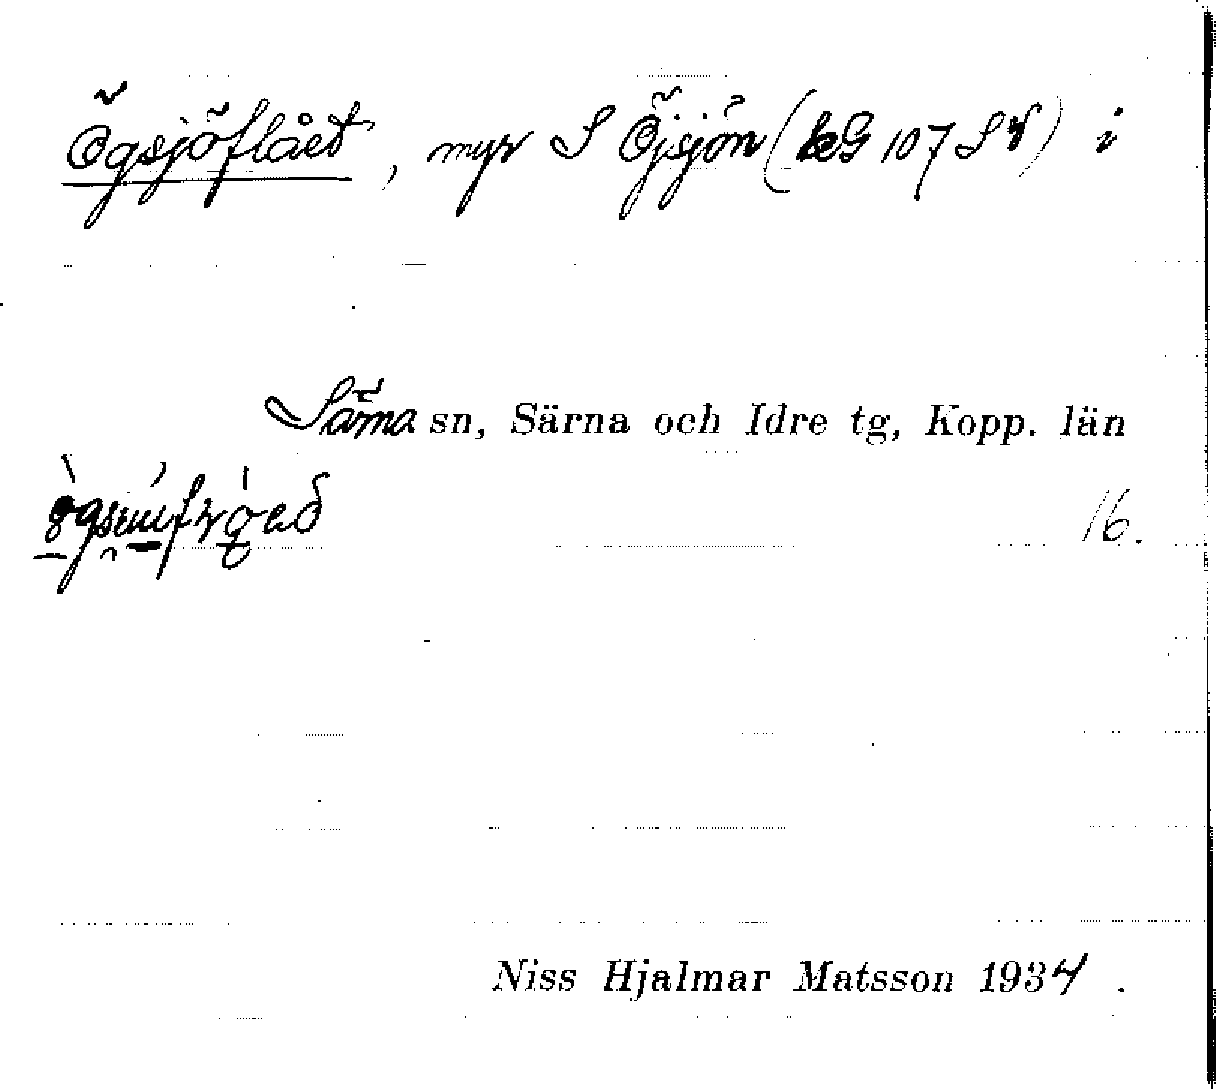 Ögsjöflået, myr S Öjsjön (kG 107 SV) i
Särna sn, Särna och Idre tg, Kopp. län
16.
Niss Hjalmar Matsson 1934.